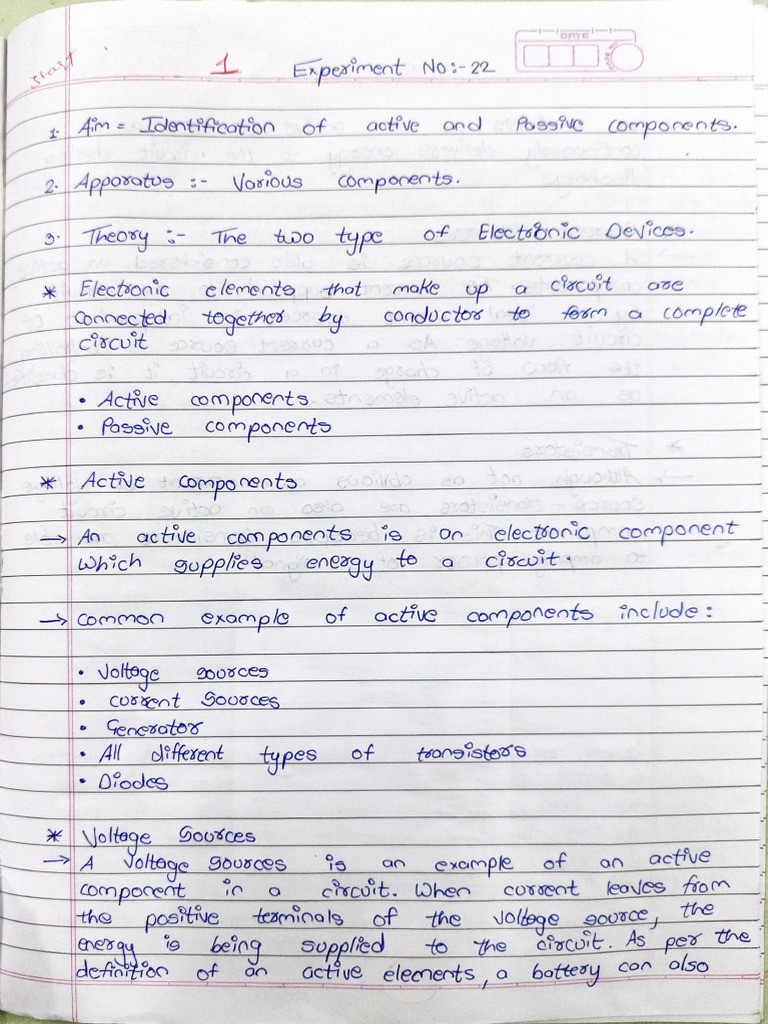 Start
1 Experiment No:- 22
DATE
1. Aim = Identification of active and Passive components.
2. Apparatus :- Various components.
3. Theory :- The two type of Electronic Devices.
* Electronic elements that make up a circuit are
connected together by conductor to form a complete
circuit
• Active components
• Passive components
* Active components
→ An active components is an electronic component
which supplies energy to a circuit.
→ Common example of active components include :
• Voltage sources
• Current Sources
• Generator
• All different types of transistors
• Diodes
* Voltage Sources
→ A voltage sources is an example of an active
component in a circuit. When current leaves from
the positive terminals of the voltage source, the
energy is being supplied to the circuit. As per the
definition of an active elements, a battery can also